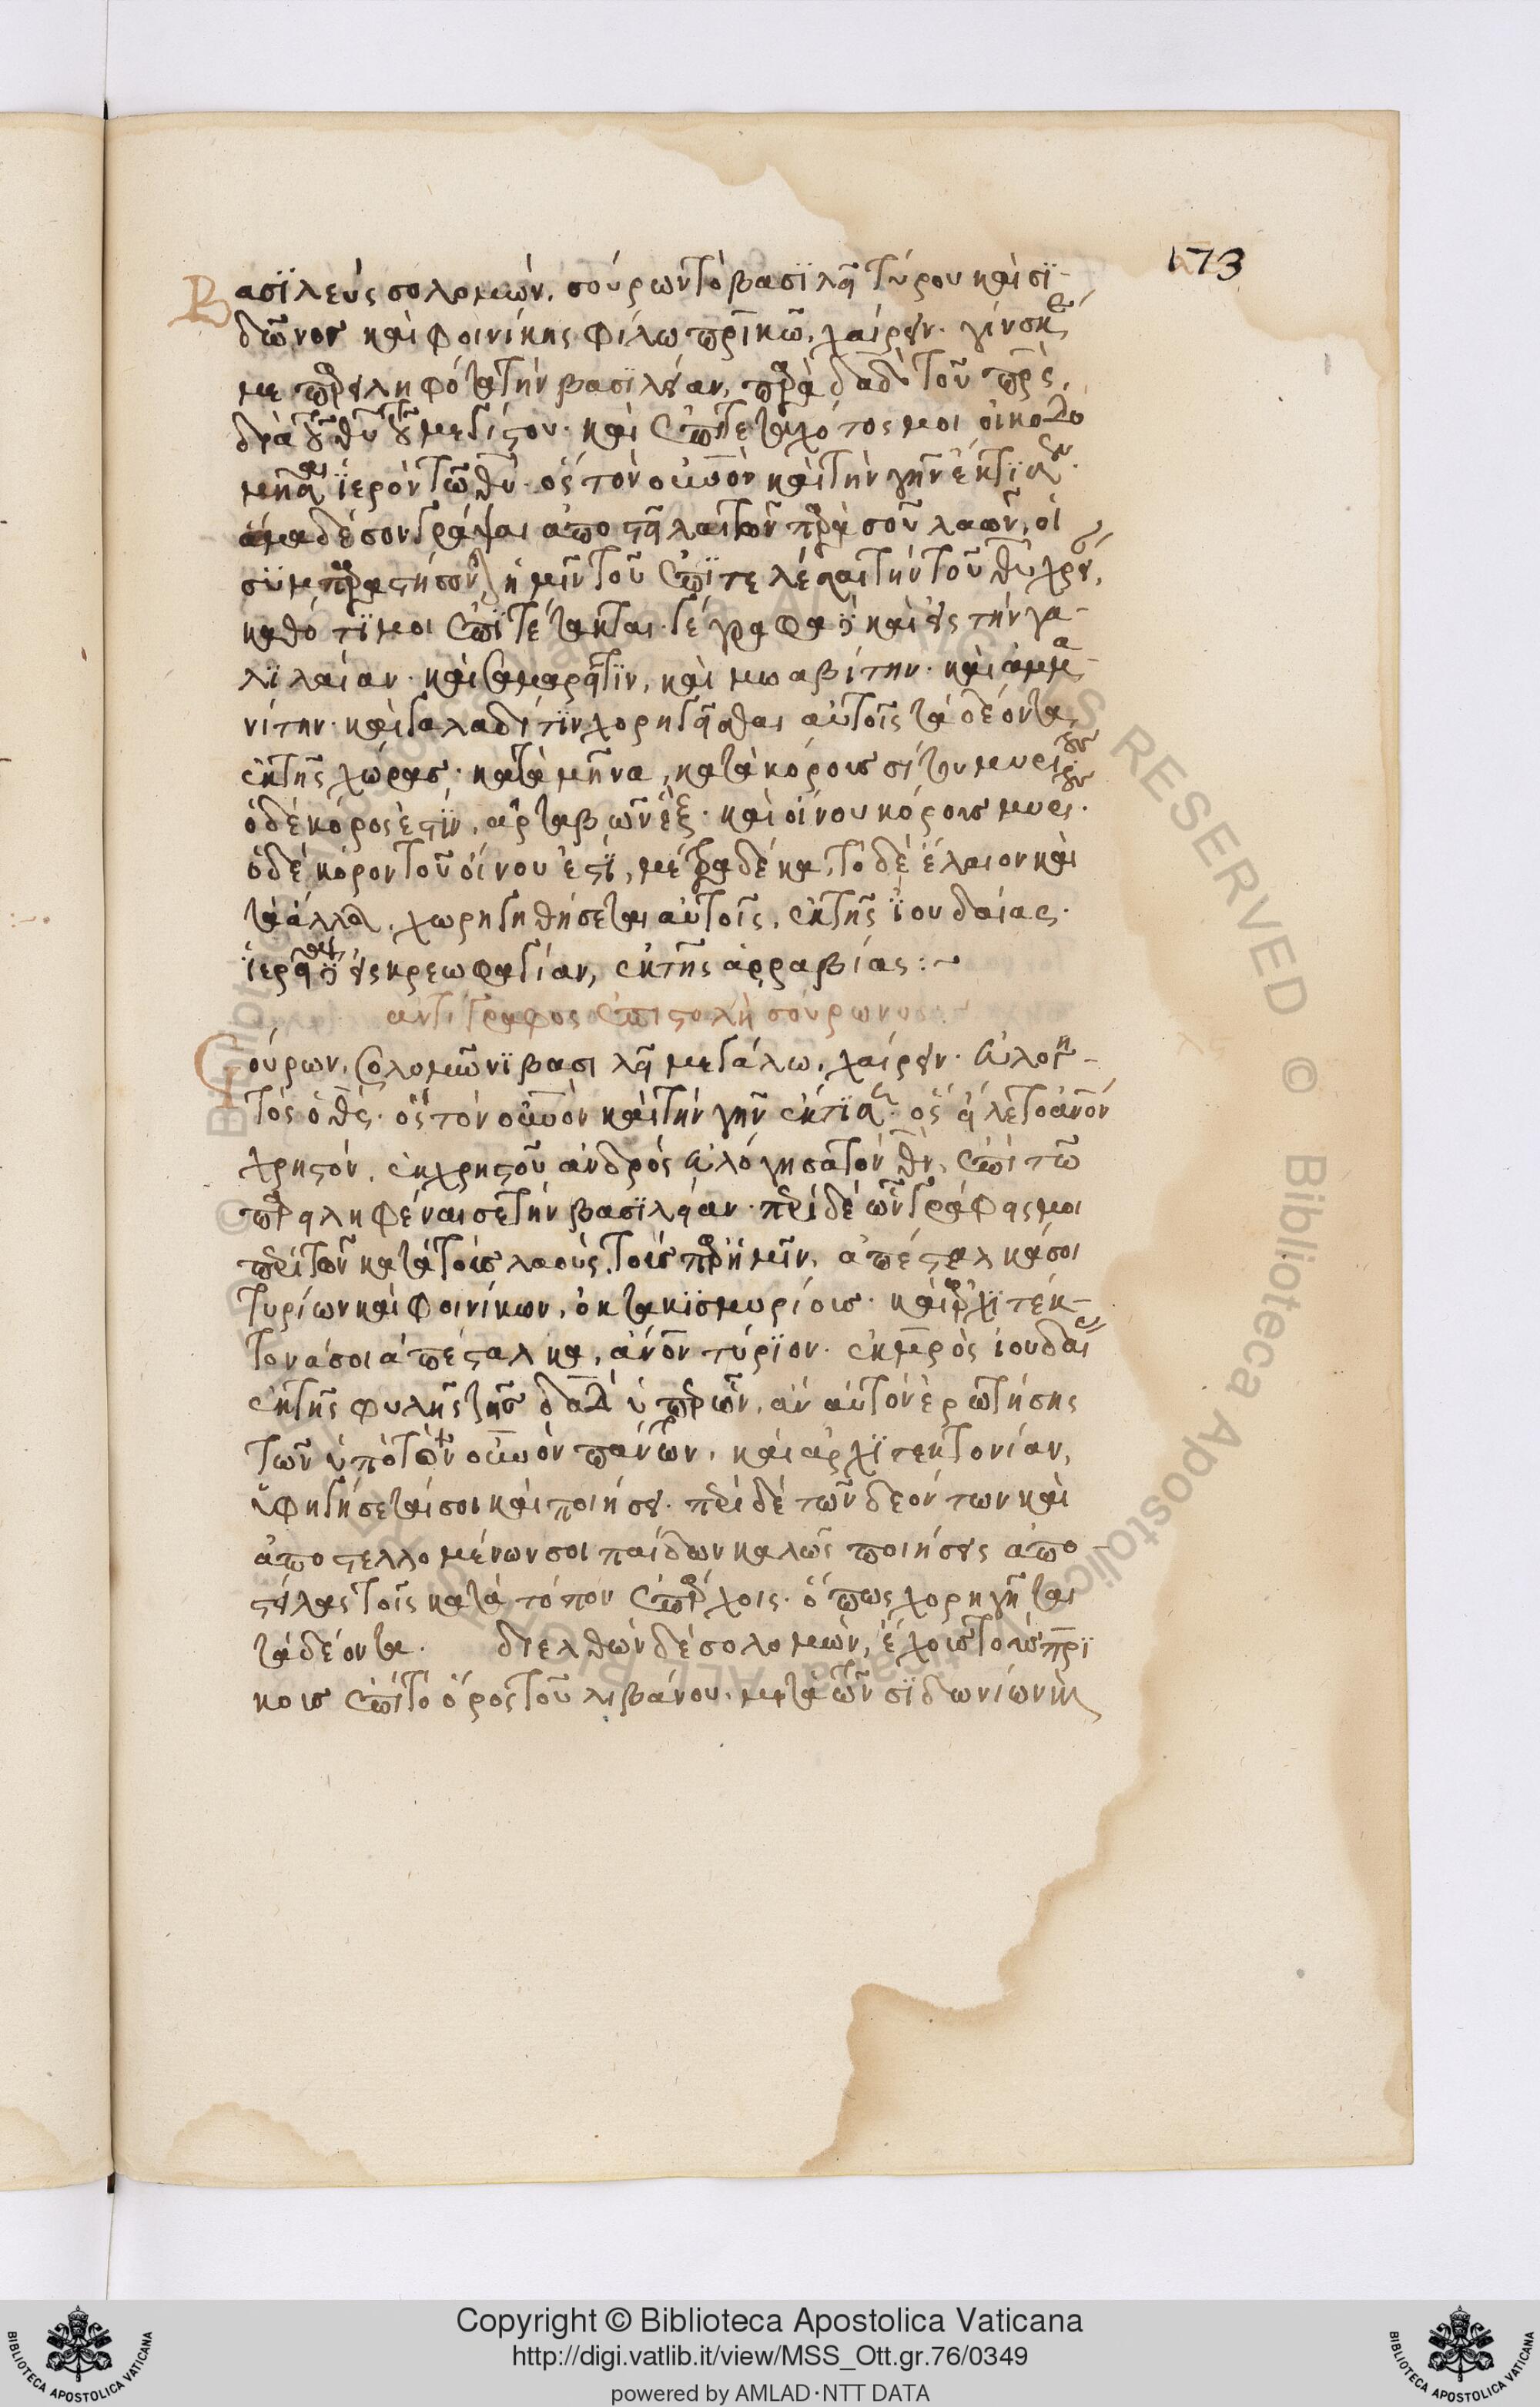 173
Βασϊλεὺς σολομῶν. σούρωντὸ βασϊλεῖ τύρου καὶ σϊ-
δῶνος καὶ φοινίκης φίλω πρ̅ικῶ, χαίρειν. γίνοσκέ
με παρειληφότα τὴν βασϊλείαν, παρὰ δα̅δ̅ τοῦ πρ̅ς,
διὰ τοῦ θ̅υ τοῦ μεγίστου. καὶ ἐπιτεταχότος μοι οἰκοδο
μῆσαι ϊερὸν τῶ θ̅ῶ. ὃς τὸν οὐ̅νὸν καὶ τὴν γῆν ἔκτϊσεν.
ἅμα δέ σοι γράψαι ἀποστεῖλαι τῶν παρὰ σοῦ λαῶν, οἱ
συμπαραστήσον ἡμῖν τοῦ ἐπϊτελέσαι τὴν τοῦ θ̅υ χρεί,
καθό τϊ μοι ἐπϊτέτακται. γέγραφα δὲ καὶ εἰς τὴν γα-
λϊλαίαν. καὶ σαμαρεῖτϊν, καὶ μωαβίτην. καὶ ἀμμα-
νίτην. καὶ γαλαδίτϊν χορηγεῖσθαι αὐτοῖς τὰ δέοντα,
ἐκ τῆς χώρας. κατὰ μῆνα, κατὰ κόρους σίτου μυρίους
ὁ δὲ κόρος ἐστϊν, ἀρταβῶν ἕξ. καὶ οἴνου κόρους μυρίους.
ὁ δὲ κόρον τοῦ οἴνου ἐστϊ, μέτρα δέκα, τὸ δὲ ἔλαιον καὶ
τὰ ἄλλα, χωρηγηθήσεται αὐτοῖς, ἐκ τῆς ϊουδαίας.
ϊερεῖα δὲ εἰς κρεωφαγίαν, ἐκ τῆς ἀρραβίας:~
ἀντίγραφος ἐπιστολὴ σούρωνος
Σούρων, σολομῶνϊ βασιλεῖ μεγάλω, χαίρειν. εὐλογη-
τὸς ὁ θ̅ς. ὃς τὸν οὐ̅νὸν καὶ τὴν γῆν ἔκτϊσεν. ὃς εἵλετο ἄν̅ον
χρηστόν, ἐκ χρηστοῦ ἀνδρὸς εὐλόγησα τὸν θ̅ν, ἐπὶ τῶ
παρειληφέναι σε τὴν βασϊλείαν. περὶ δὲ ὧν γράφεις μοι
περὶ τῶν κατὰ τοὺς λαοὺς, τοὺς παρ' ἡμῖν, ἀπέσταλκά σοι
τυρίων καὶ φοινίκων, ὀκτακϊσμυρίους. καὶ ἀρχϊτέκ-
τονά σοι ἀπέσταλκα, ἄν̅ον τύρϊον. ἐκ μ̅ρὸς ἰουδαί
ἐκ τῆς φυλῆς τῆς δα̅δ̅ ὑπὲρ ὧν, ἂν αὐτὸν ἐρωτήσης
τῶν ὑπὸ τὸν οὐ̅νὸν πάντων, καὶ ἀρχϊτεκτονίαν,
ὑφηγήσεταί σοι καὶ ποιήσει. περὶ δὲ τῶν δεόντων καὶ
ἀποστελλομένων σοι παίδων καλῶς ποιήσεις ἀπο-
στείλας τοῖς κατὰ τόπον ἐπάρχοις. ὅπως χορηγῆται
τὰ δέοντα. διελθὼν δὲ σολομῶν, ἔχοις τοὺς πρ̅ϊ
κοις ἐπὶ τὸ ὄρος τοῦ λιβάνου. μετὰ τῶν σϊδωνίων καὶ
Copyright © Biblioteca Apostolica Vaticana
http://digi.vatlib.it/view/MSS_Ott.gr.76/0349
powered by AMLAD·NTT DATA